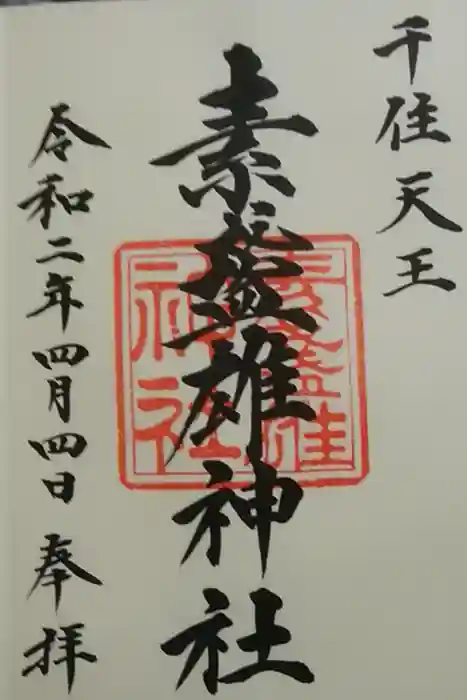 千住天王
素盞雄神社
素盞雄
神社
令和二年四月四日 奉拝